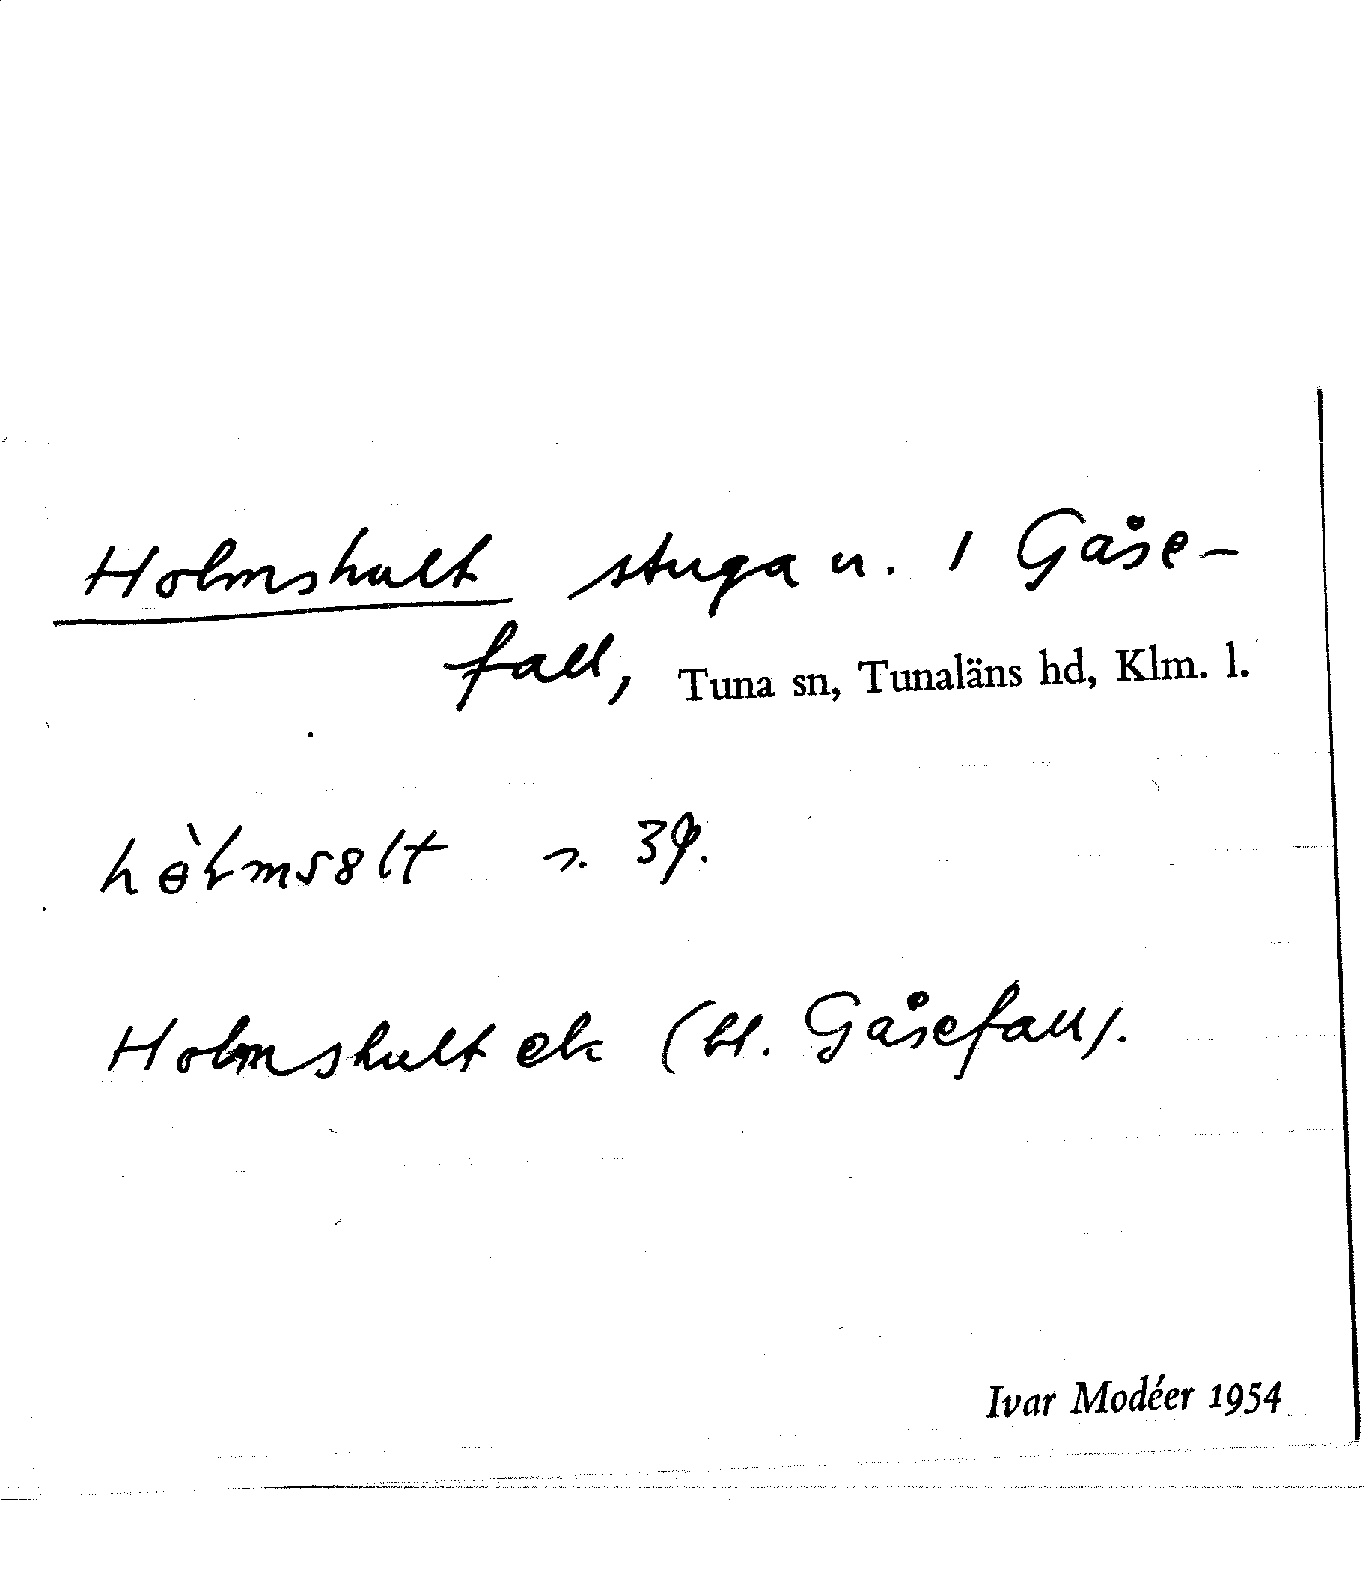 Holmshult stuga u. 1 Gåse-
fall, Tuna sn, Tunaläns hd, Klm. l.
hòlmsɵlt 39.
Holmshult ek (bl. Gåsefall).
Ivar Modéer 1954